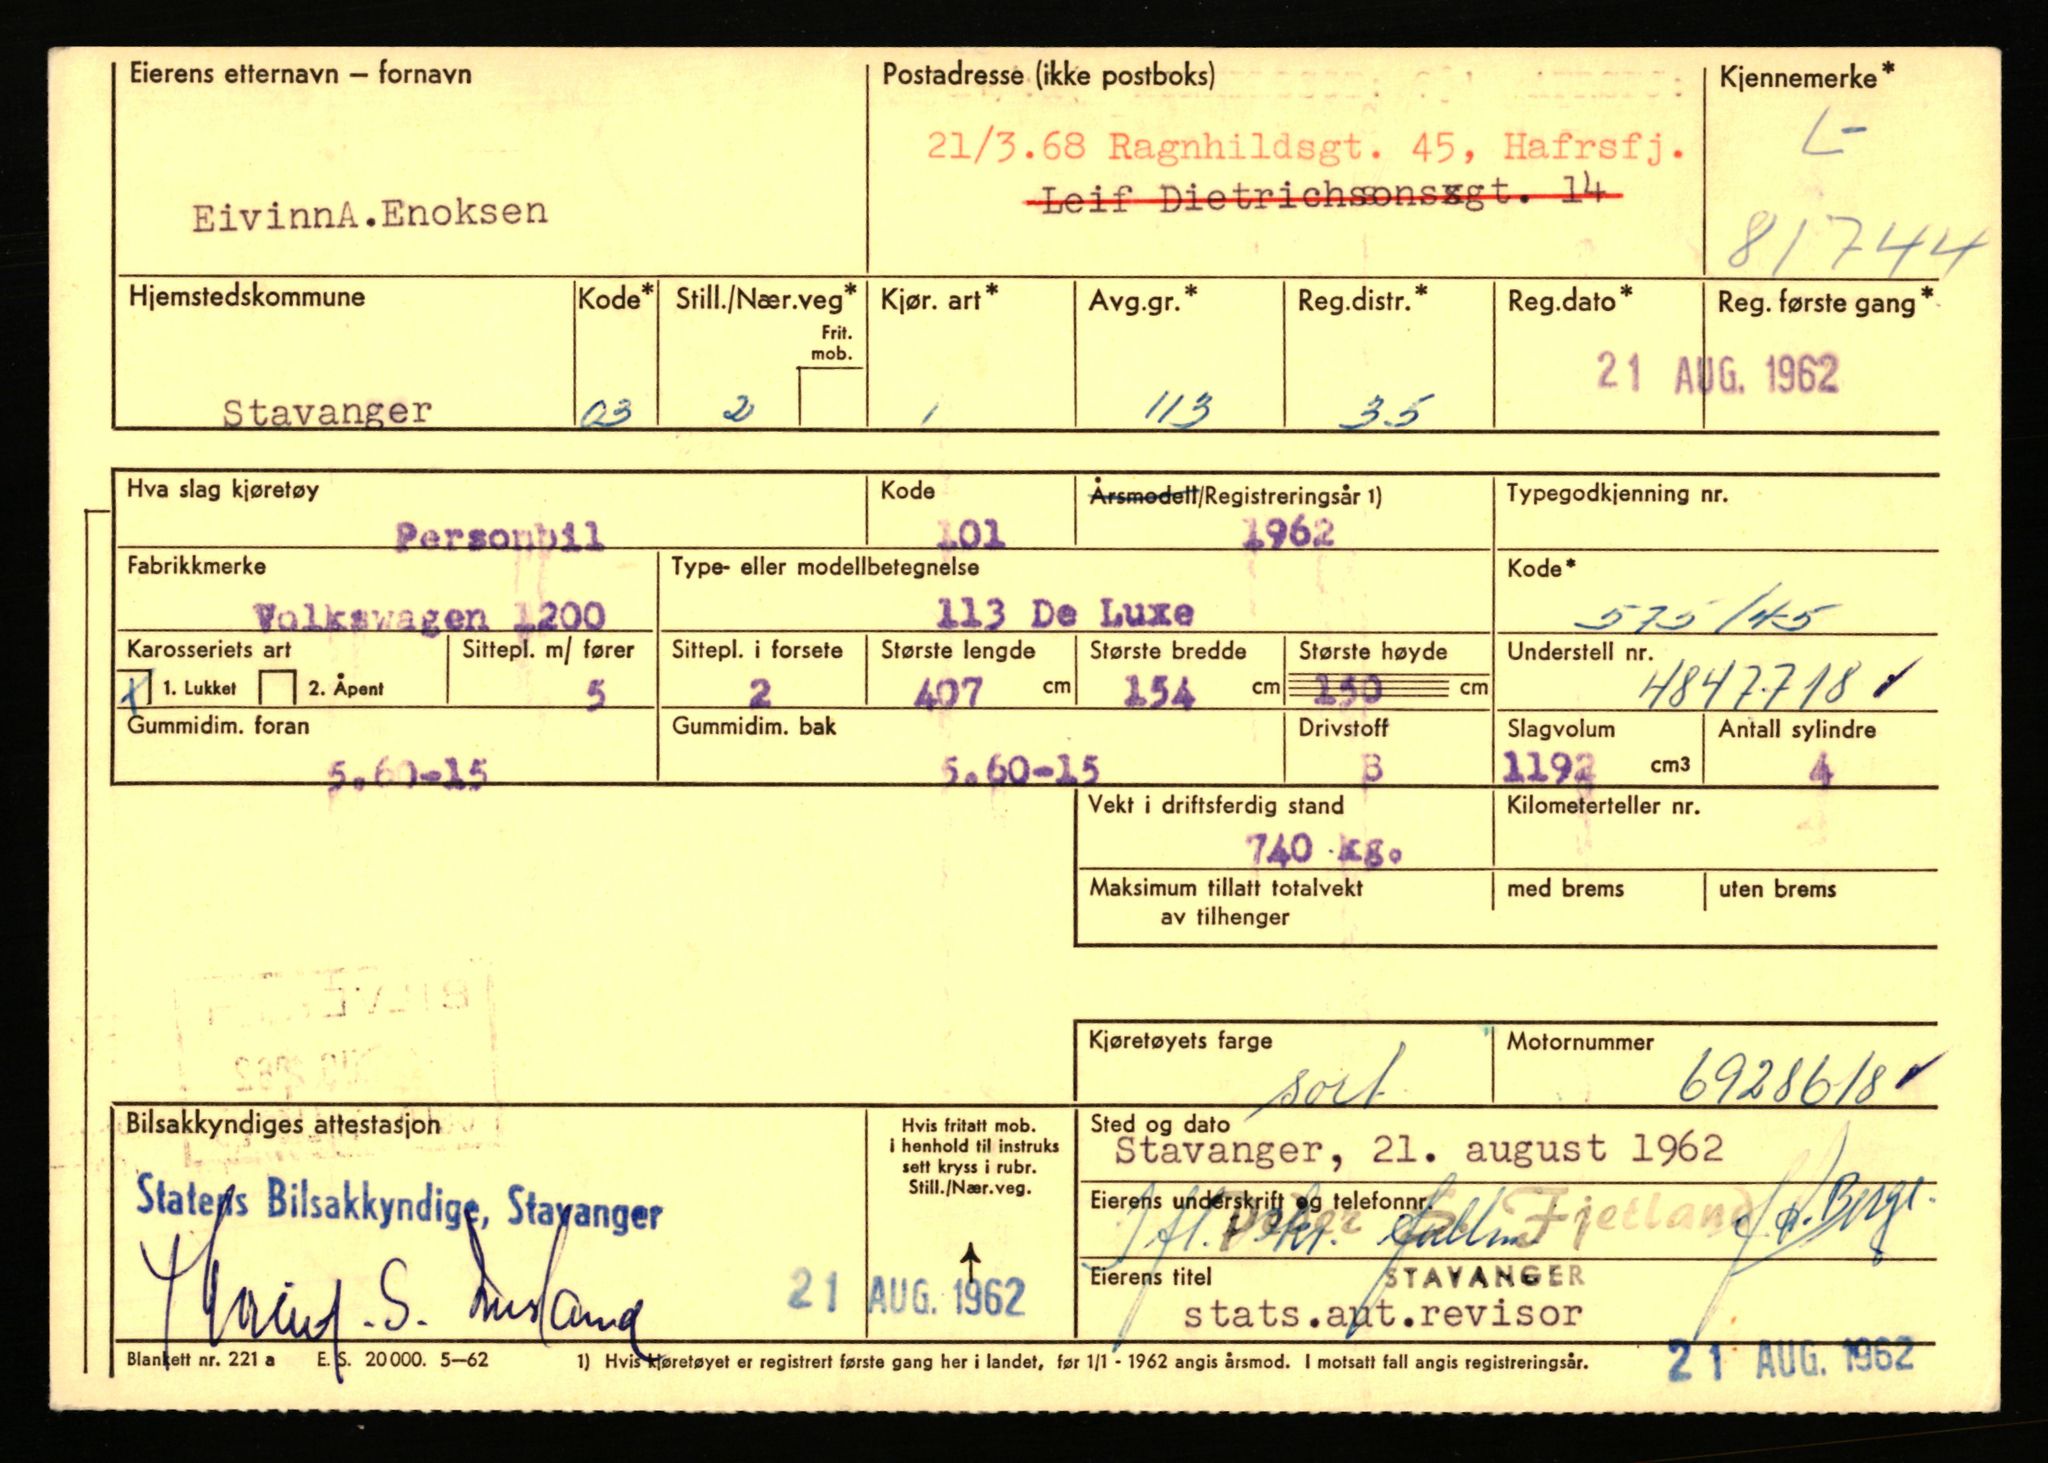 Eierens etternavn – fornavn
EivinnA.Enoksen
Postadresse (ikke postboks)
21/3.68 Ragnhildsgt. 45, Hafrsfj.
Leif Dietrichsonsxgt. 14
Kjennemerke*
L-
81744
Hjemstedskommune
Stavanger
Kode*
03
Still./Nær.veg*
Frit. mob.
2
Kjør. art*
1
Avg.gr.*
113
Reg.distr.*
35
Reg.dato*
Reg. første gang*
21 AUG. 1962
Hva slag kjøretøy
Personbil
Kode
101
Årsmodell/Registreringsår 1)
1962
Typegodkjenning nr.
Fabrikkmerke
Volkswagen 1200
Type- eller modellbetegnelse
113 De Luxe
Kode*
575/45
Karosseriets art
X 1. Lukket 2. Åpent
Sittepl. m/ fører
5
Sittepl. i forsete
2
Største lengde
407 cm
Største bredde
154 cm
Største høyde
150 cm
Understell nr.
4847718
Gummidim. foran
5.60-15
Gummidim. bak
5.60-15
Drivstoff
B
Slagvolum
1192 cm3
Antall sylindre
4
Vekt i driftsferdig stand
740 kg.
Kilometerteller nr.
Maksimum tillatt totalvekt
av tilhenger
med brems
uten brems
Kjøretøyets farge
sort
Motornummer
6928618
Bilsakkyndiges attestasjon
Statens Bilsakkyndige, Stavanger
21 AUG. 1962
Hvis fritatt mob.
i henhold til instruks
sett kryss i rubr.
Still./Nær.veg.
Sted og dato
Stavanger, 21. august 1962
Eierens underskrift og telefonnr.
Fjetland
Berge
Eierens titel
STAVANGER
stats.aut.revisor
21 AUG. 1962
Blankett nr. 221 a E. S. 20 000. 5–62
1) Hvis kjøretøyet er registrert første gang her i landet, før 1/1 - 1962 angis årsmod. I motsatt fall angis registreringsår.